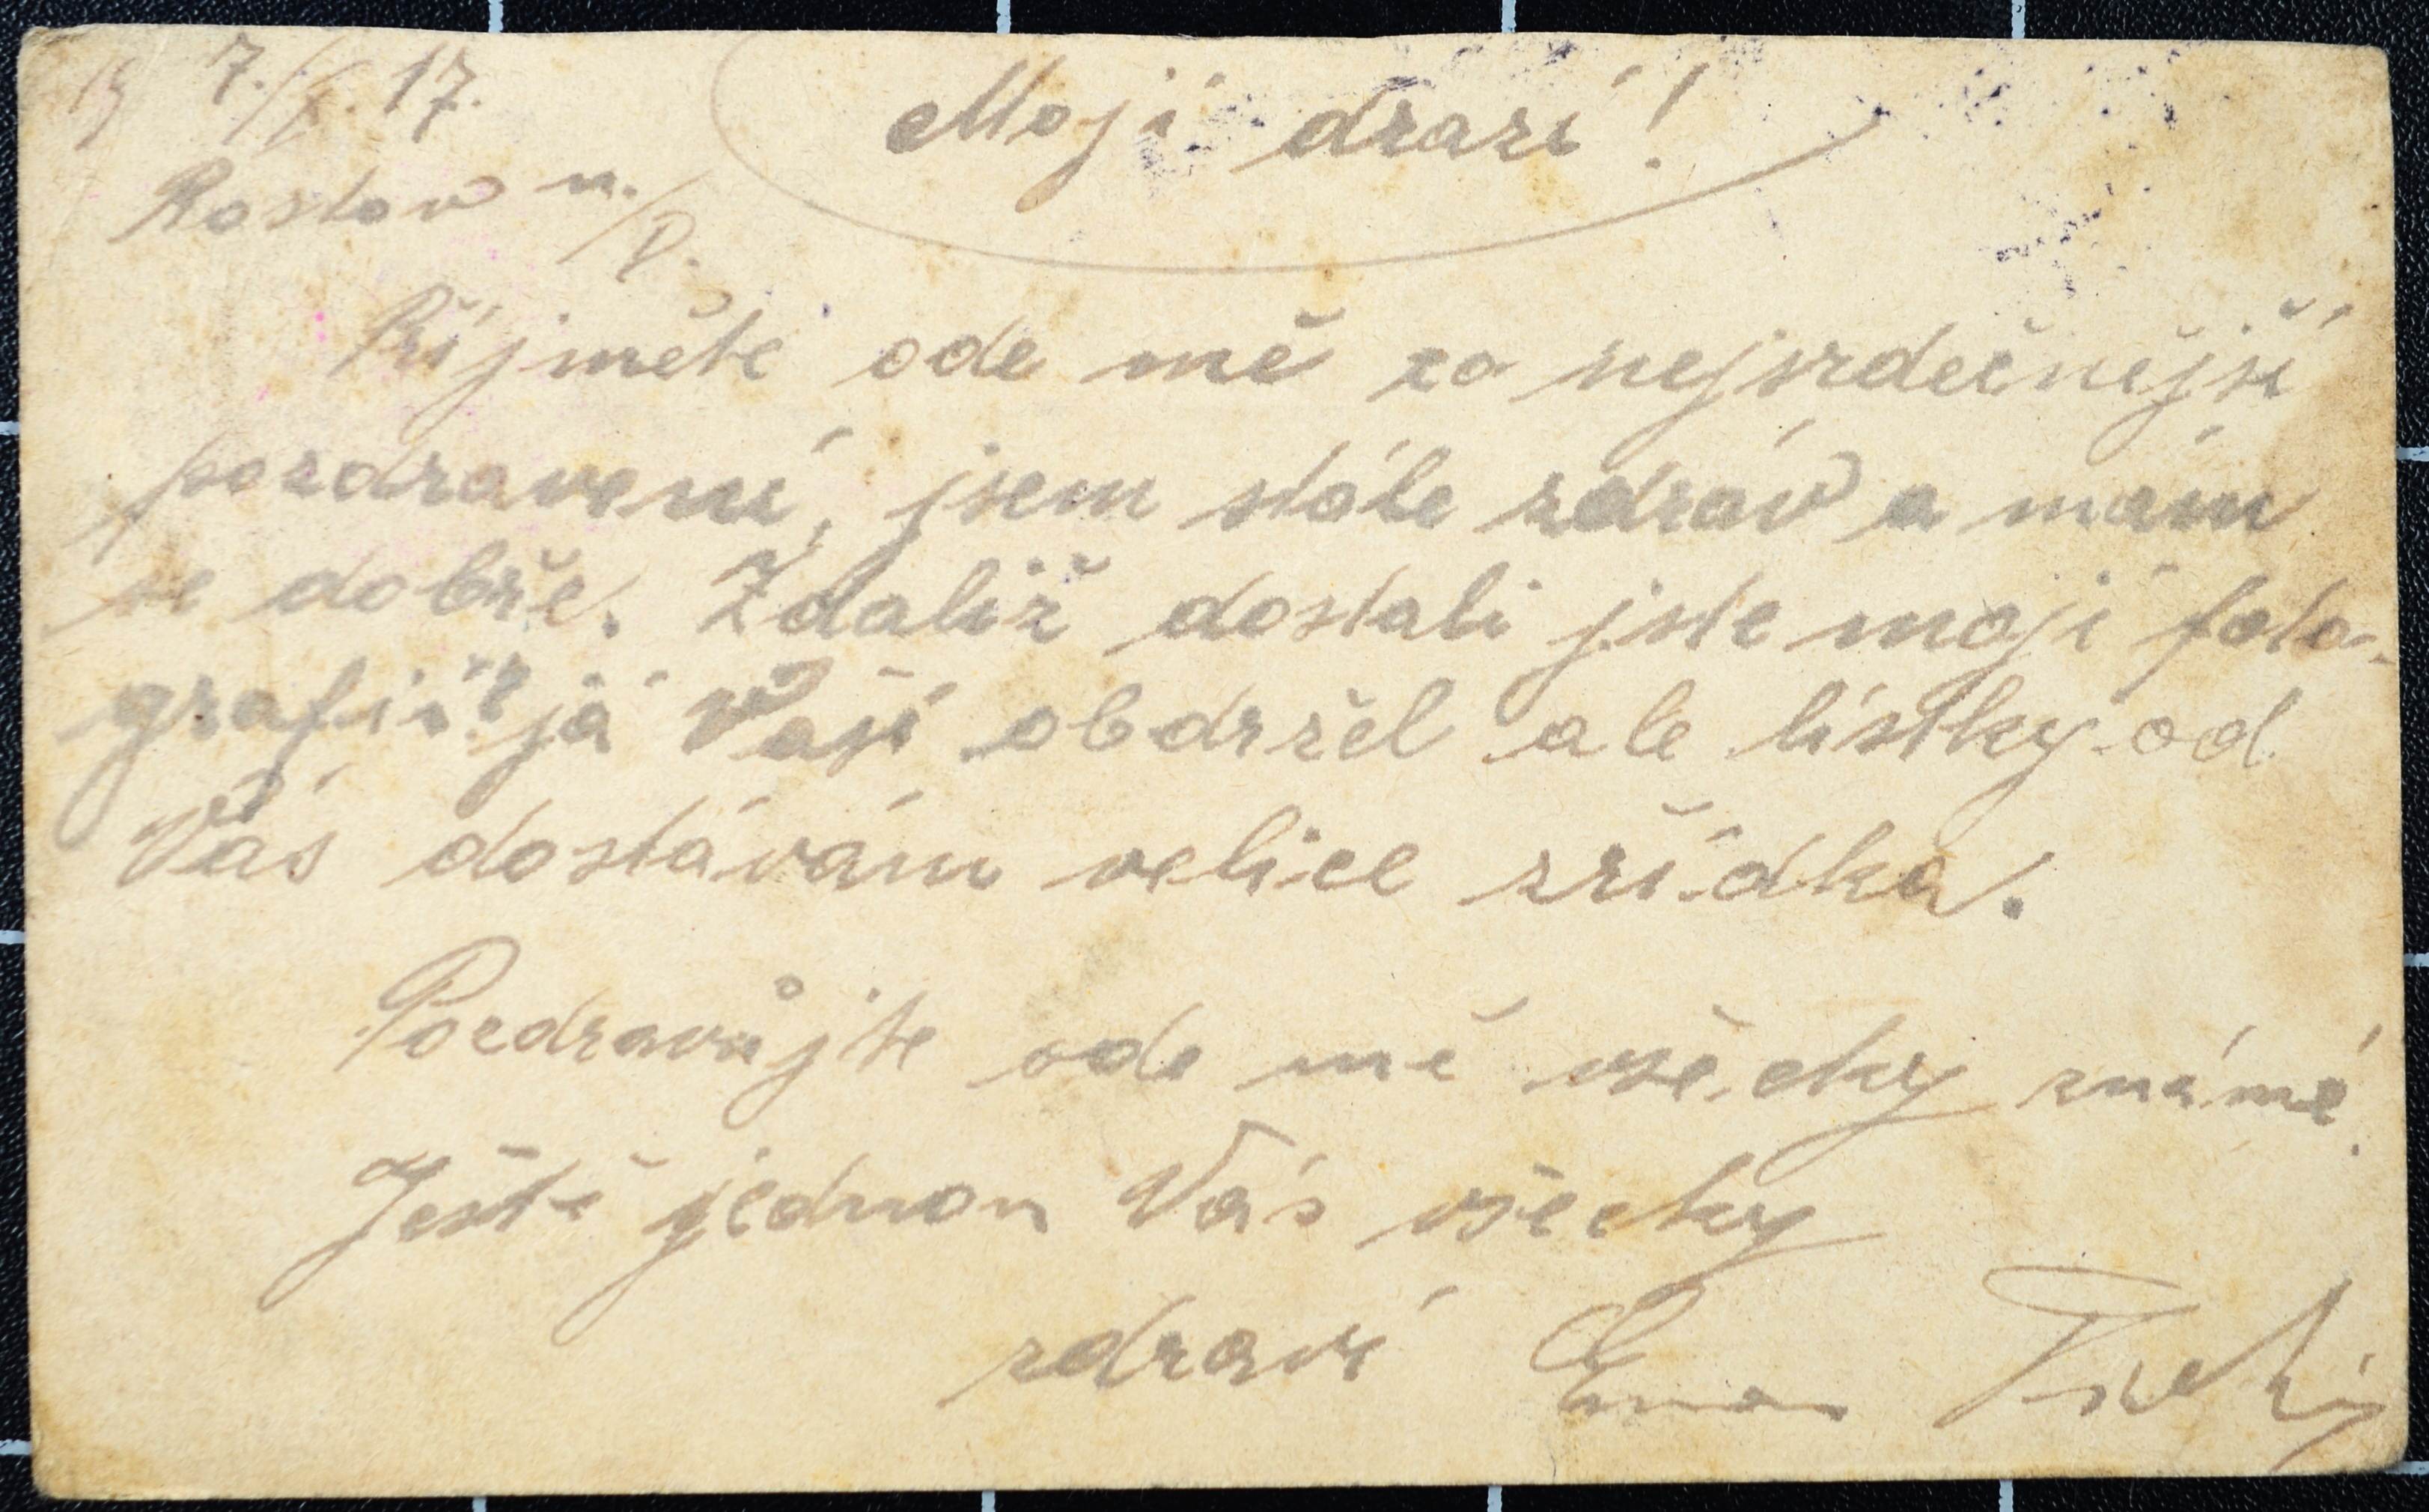 7./X. 17.
Moji drazí!
Rostov n./D.
Příjměte ode mě co nejsrdečnější
pozdravení, jsem stále zdráv a mám
se dobře. Zdaliž dostali jste moji foto-
grafii? já Vaší obdržel ale lístky od
Vás dostávám velice zřídka.
Pozdravůjte ode mě všecky známé.
Ještě jednou Vás všecky
zdraví